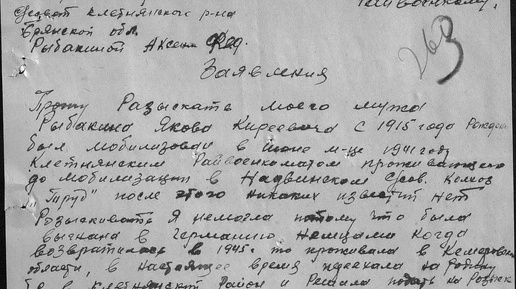 Райвоенкому,
Клетнянского р-на
Брянской обл.
Рыбакиной Аксени Фед.
263
Заявления
Прошу Разыскать моего мужа
Рыбакина Якова Киреевича с 1915 года Рожден
был мобилизован в июне м-це 1941 году
Клетнянским Райвоенкоматом проживающего
до мобилизации в Надвинском с/сов. колхоз
"Труд" после этого никаких известий нет
Розыскивать я немогла потому что была
выгнана в Германию Немцами когда
возвратилась в 1945г. то проживала в Кемеров
области, в настоящее время переехала на Родину
в Клетнянский район и Решила подать на Розыск